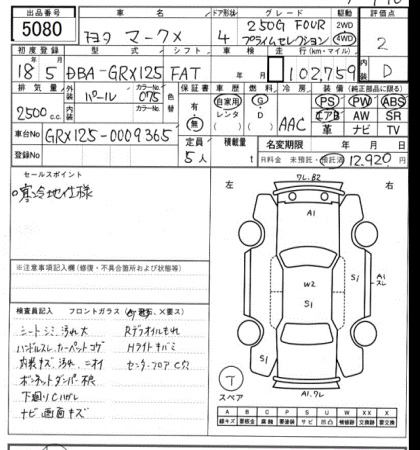 出品番号 車名 ドア形状 グレード 駆動 評価点
5080 トヨタ マークX 4 250G FOUR プライムセレクション 2WD 4WD 2
初度登録 型式 シフト 車検 走行(km・マイル) 内装
18年5月 DBA-GRX125 FAT 年 月 102,759 D
排気量 外装 内装 カラーNo. 色替 保証書 車歴 燃料 冷房 装備(純正部品に限る)
2500cc パール 075 カラーNo. 有・無 自家用 レンタ G D AAC PS PW ABS
エアB AW SR
革 ナビ TV
車台No GRX125-0009365 定員 積載量 名変期限 年 月 日
登録No 5人 t R料金 未預託・預託済 12,920円
セールスポイント
○寒冷地仕様
左 右
ワレ.B2
A1
A1
スレ
W2
Si
Si
Si
A1.ワレ
※注意事項記入欄(修復・不具合箇所および状態等)
検査員記入 フロントガラス
シートシミ汚れ大 Rデフオイルもれ
ハンドルスレ カーペットコゲ Hライトキバミ
内装キズ 汚れ ニオイ センターフロアC穴
ボンネットダンパー不良
下廻りCハガレ
ナビ画面キズ
T
スペア
A B C P S U W X XX
線キズ 要板金 腐蝕 要塗装 サビ 凹凸 補修跡 要交換 交換跡